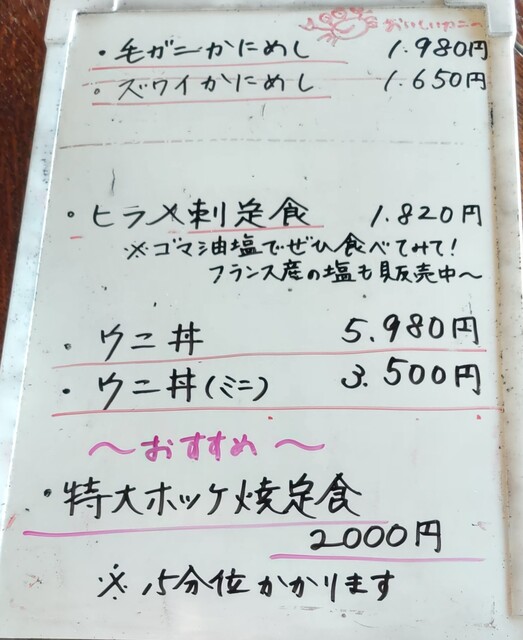 おいしいカニの
・毛ガニかにめし 1.980円
・ズワイかにめし 1.650円
・ヒラメ刺定食 1.820円
※ゴマ油塩でぜひ食べてみて!
フランス産の塩も販売中〜
・ウニ丼 5.980円
・ウニ丼(ミニ) 3.500円
〜おすすめ〜
・特大ホッケ焼定食
2000円
※15分位かかります